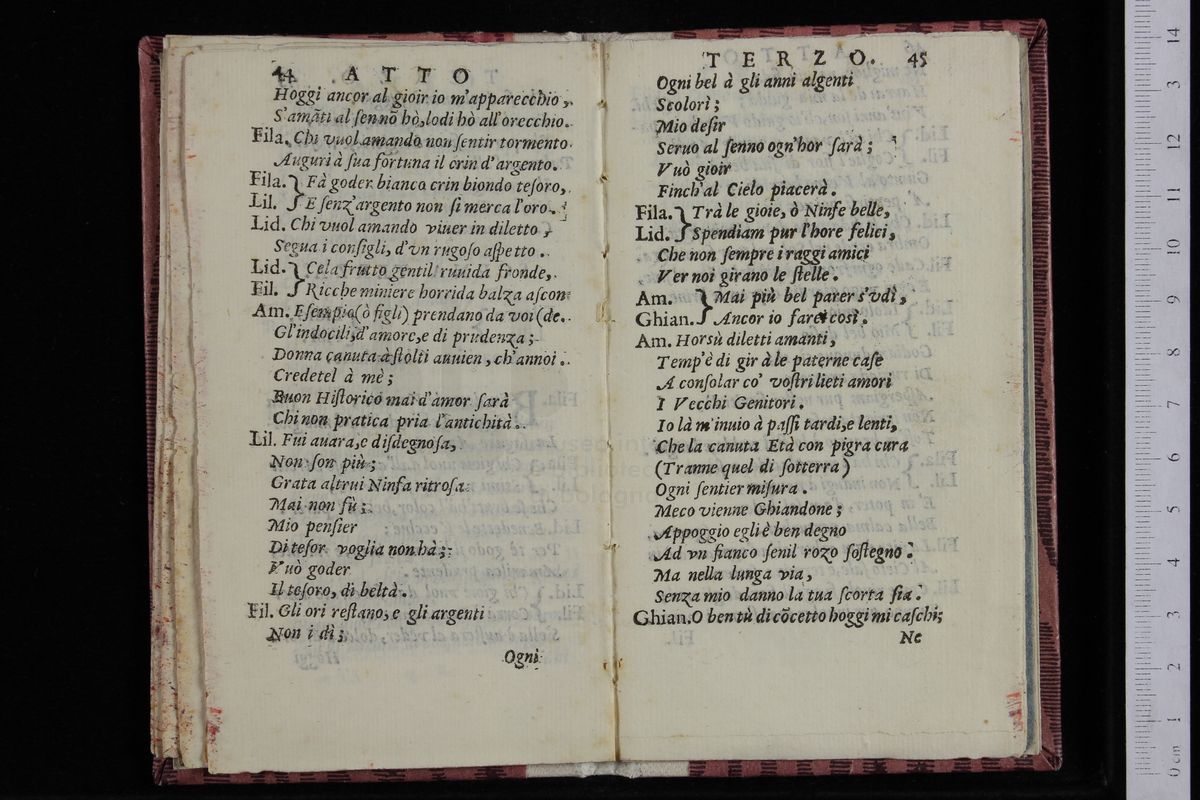 44 ATTO
Hoggi ancor al gioir io m'apparecchio,
S'amāti al ſennō hò, lodi hò all'orecchio.
Fila. Chi vuol amando non ſentir tormento.
Auguri à ſua fortuna il crin d'argento.
Fila. } Fà goder bianco crin biondo teſoro,
Lil. } E ſenz'argento non ſi merca l'oro.
Lid. Chi vuol amando viuer in diletto,
Segua i conſigli, d'vn rugoſo aſpetto.
Lid. } Cela frutto gentil ruuida fronde,
Fil. } Ricche miniere horrida balza aſcon-
Am. Eſempio (ò figli) prendano da voi (de.
Gl'indocili, d'amore, e di prudenza;
Donna canuta à ſtolti auuien, ch'annoi.
Credetel à mè;
Buon Hiſtorico mai d'amor ſarà
Chi non pratica pria l'antichità.
Lil. Fui auara, e diſdegnoſa,
Non ſon più;
Grata altrui Ninfa ritroſa
Mai non fù;
Mio penſier
Di teſor voglia non hà;
Vuò goder
Il teſoro, di beltà.
Fil. Gli ori reſtano, e gli argenti
Non i dì;
Ogni
TERZO. 45
Ogni bel à gli anni algenti
Scolorì;
Mio deſir
Seruo al ſenno ogn'hor ſarà;
Vuò gioir
Finch'al Cielo piacerà.
Fila. } Trà le gioie, ò Ninfe belle,
Lid. } Spendiam pur l'hore felici,
Che non ſempre i raggi amici
Ver noi girano le ſtelle.
Am. } Mai più bel parer s'vdì,
Ghian. } Ancor io farei così.
Am. Horsù diletti amanti,
Temp'è di gir à le paterne caſe
A conſolar co' voſtri lieti amori
I Vecchi Genitori.
Io là m'inuio à paſſi tardi, e lenti,
Che la canuta Età con pigra cura
(Tranne quel di ſotterra)
Ogni ſentier miſura.
Meco vienne Ghiandone;
Appoggio egli è ben degno
Ad vn fianco ſenil rozo ſoſtegno.
Ma nella lunga via,
Senza mio danno la tua ſcorta ſia.
Ghian. O ben tù di cōcetto hoggi mi caſchi;
Ne